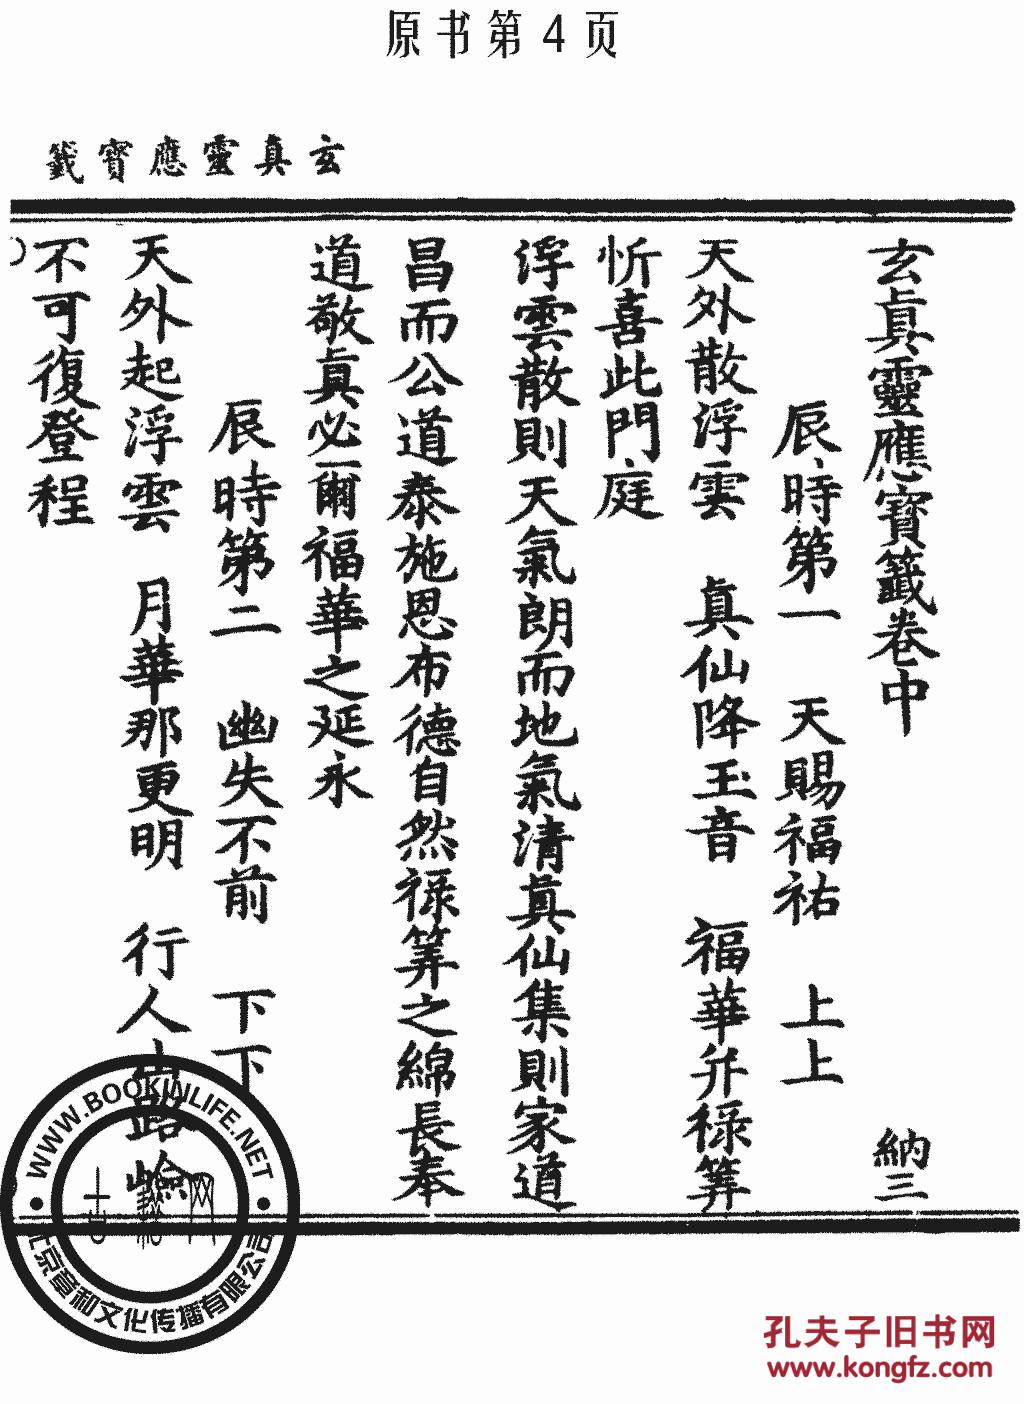 原书第4页
玄真靈應寶籤
玄真靈應寶籤卷中　納三
辰時第一　天賜福祐　上上
天外散浮雲　真仙降玉音　福華并祿筭
忻喜此門庭
浮雲散則天氣朗而地氣清真仙集則家道
昌而公道泰施恩布德自然祿筭之綿長奉
道敬真必爾福華之延永
辰時第二　幽失不前　下下
天外起浮雲　月華那更明　行人出路嶮
不可復登程
WWW.BOOKINLIFE.NET
北京章和文化传播有限公司
孔夫子旧书网
www.kongfz.com